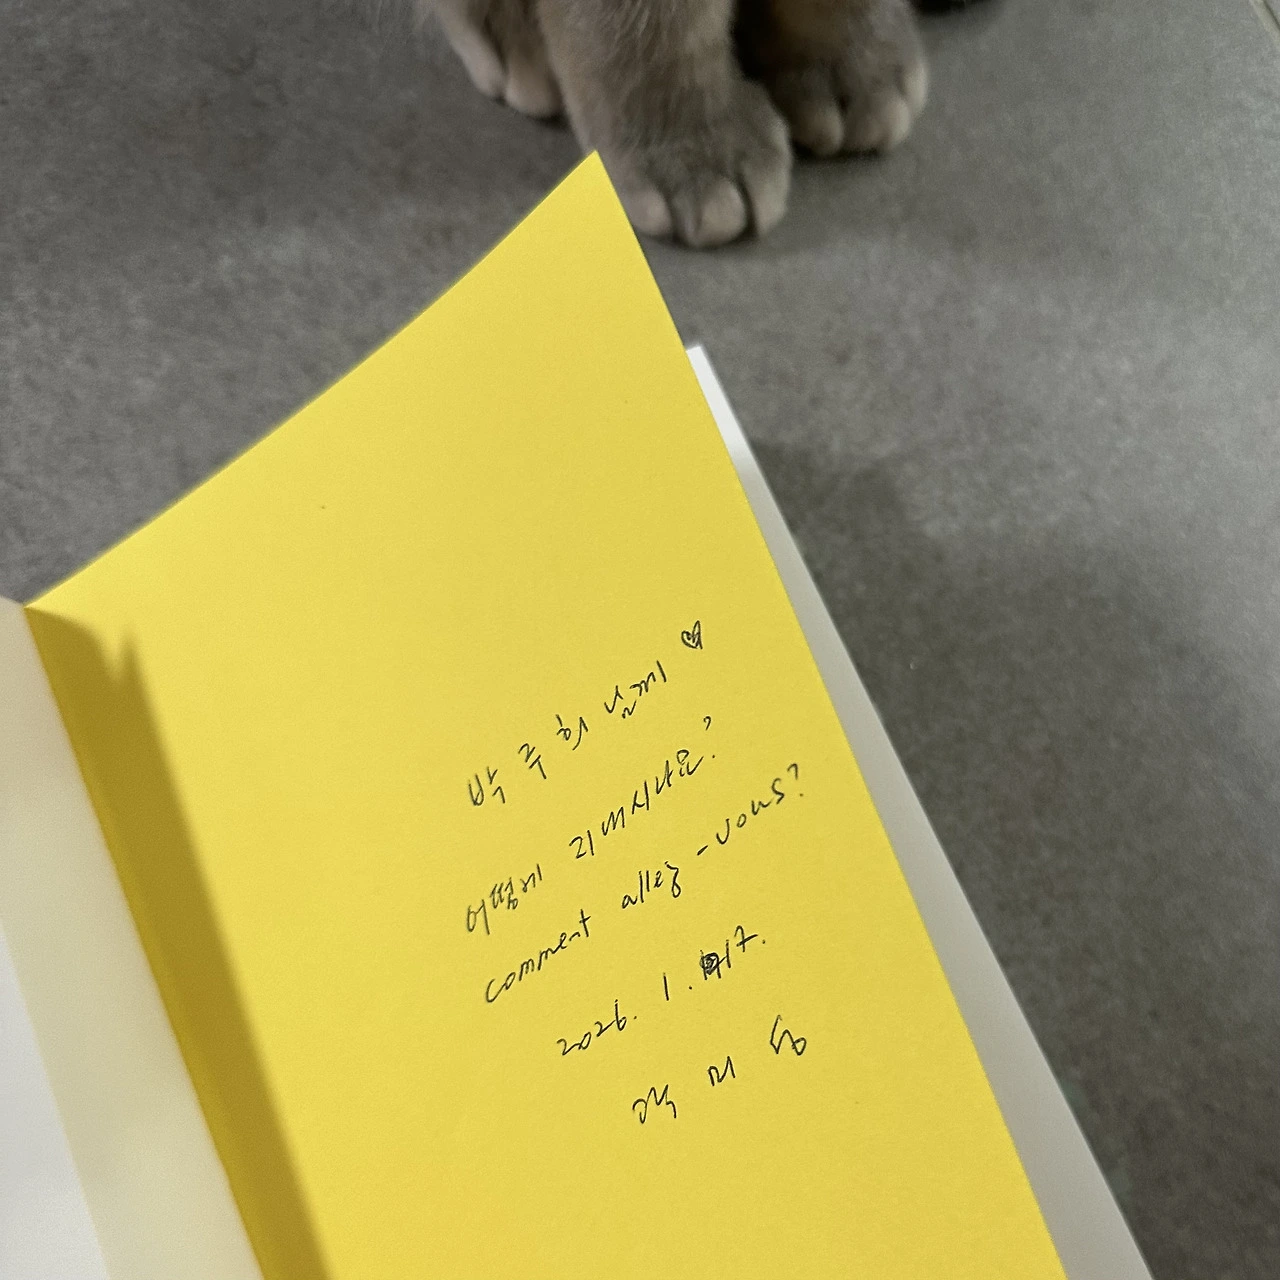 박주희 님께 ♡
어떻게 지내시나요?
comment allez-vous?
2026. 1. 17.